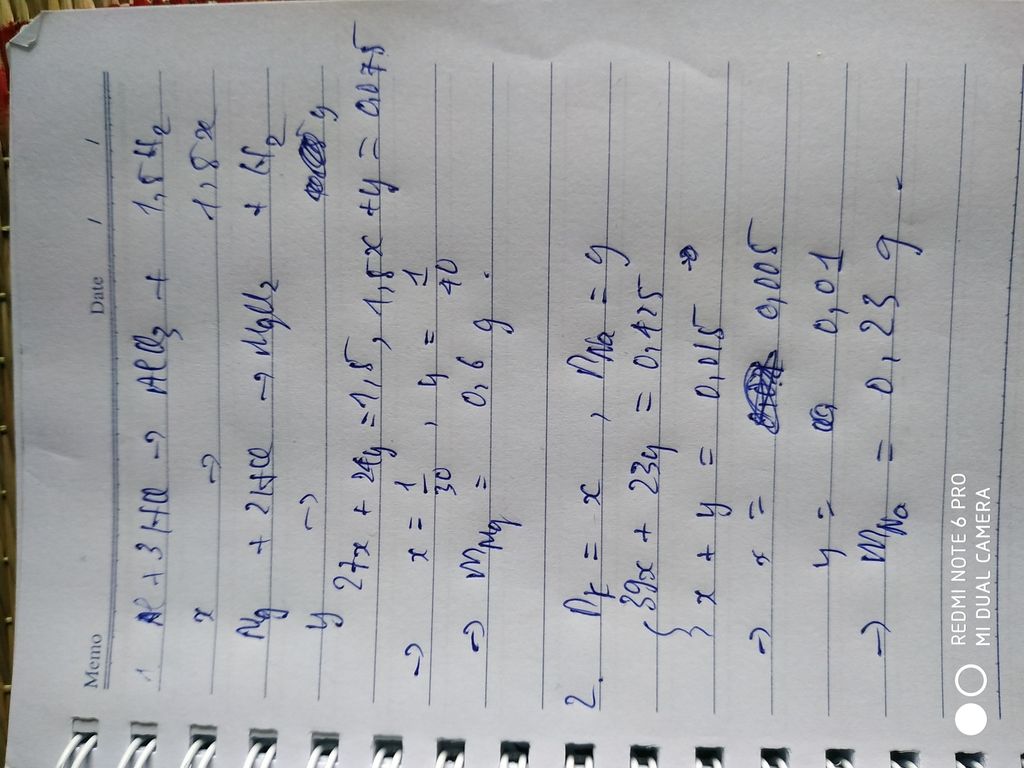 Memo Date / /
1 Al + 3HCl -> AlCl3 + 1,5H2
x -> 1,5x
Mg + 2HCl -> MgCl2 + H2
y -> y
27x + 24y = 1,5 , 1,5x + y = 0,075
-> x = 1/30 , y = 1/40
=> mMg = 0,6 g.
2. nK = x , nNa = y
{ 39x + 23y = 0,425
x + y = 0,015
=> x = 0,005
y = 0,01
=> mNa = 0,23 g.
REDMI NOTE 6 PRO
MI DUAL CAMERA